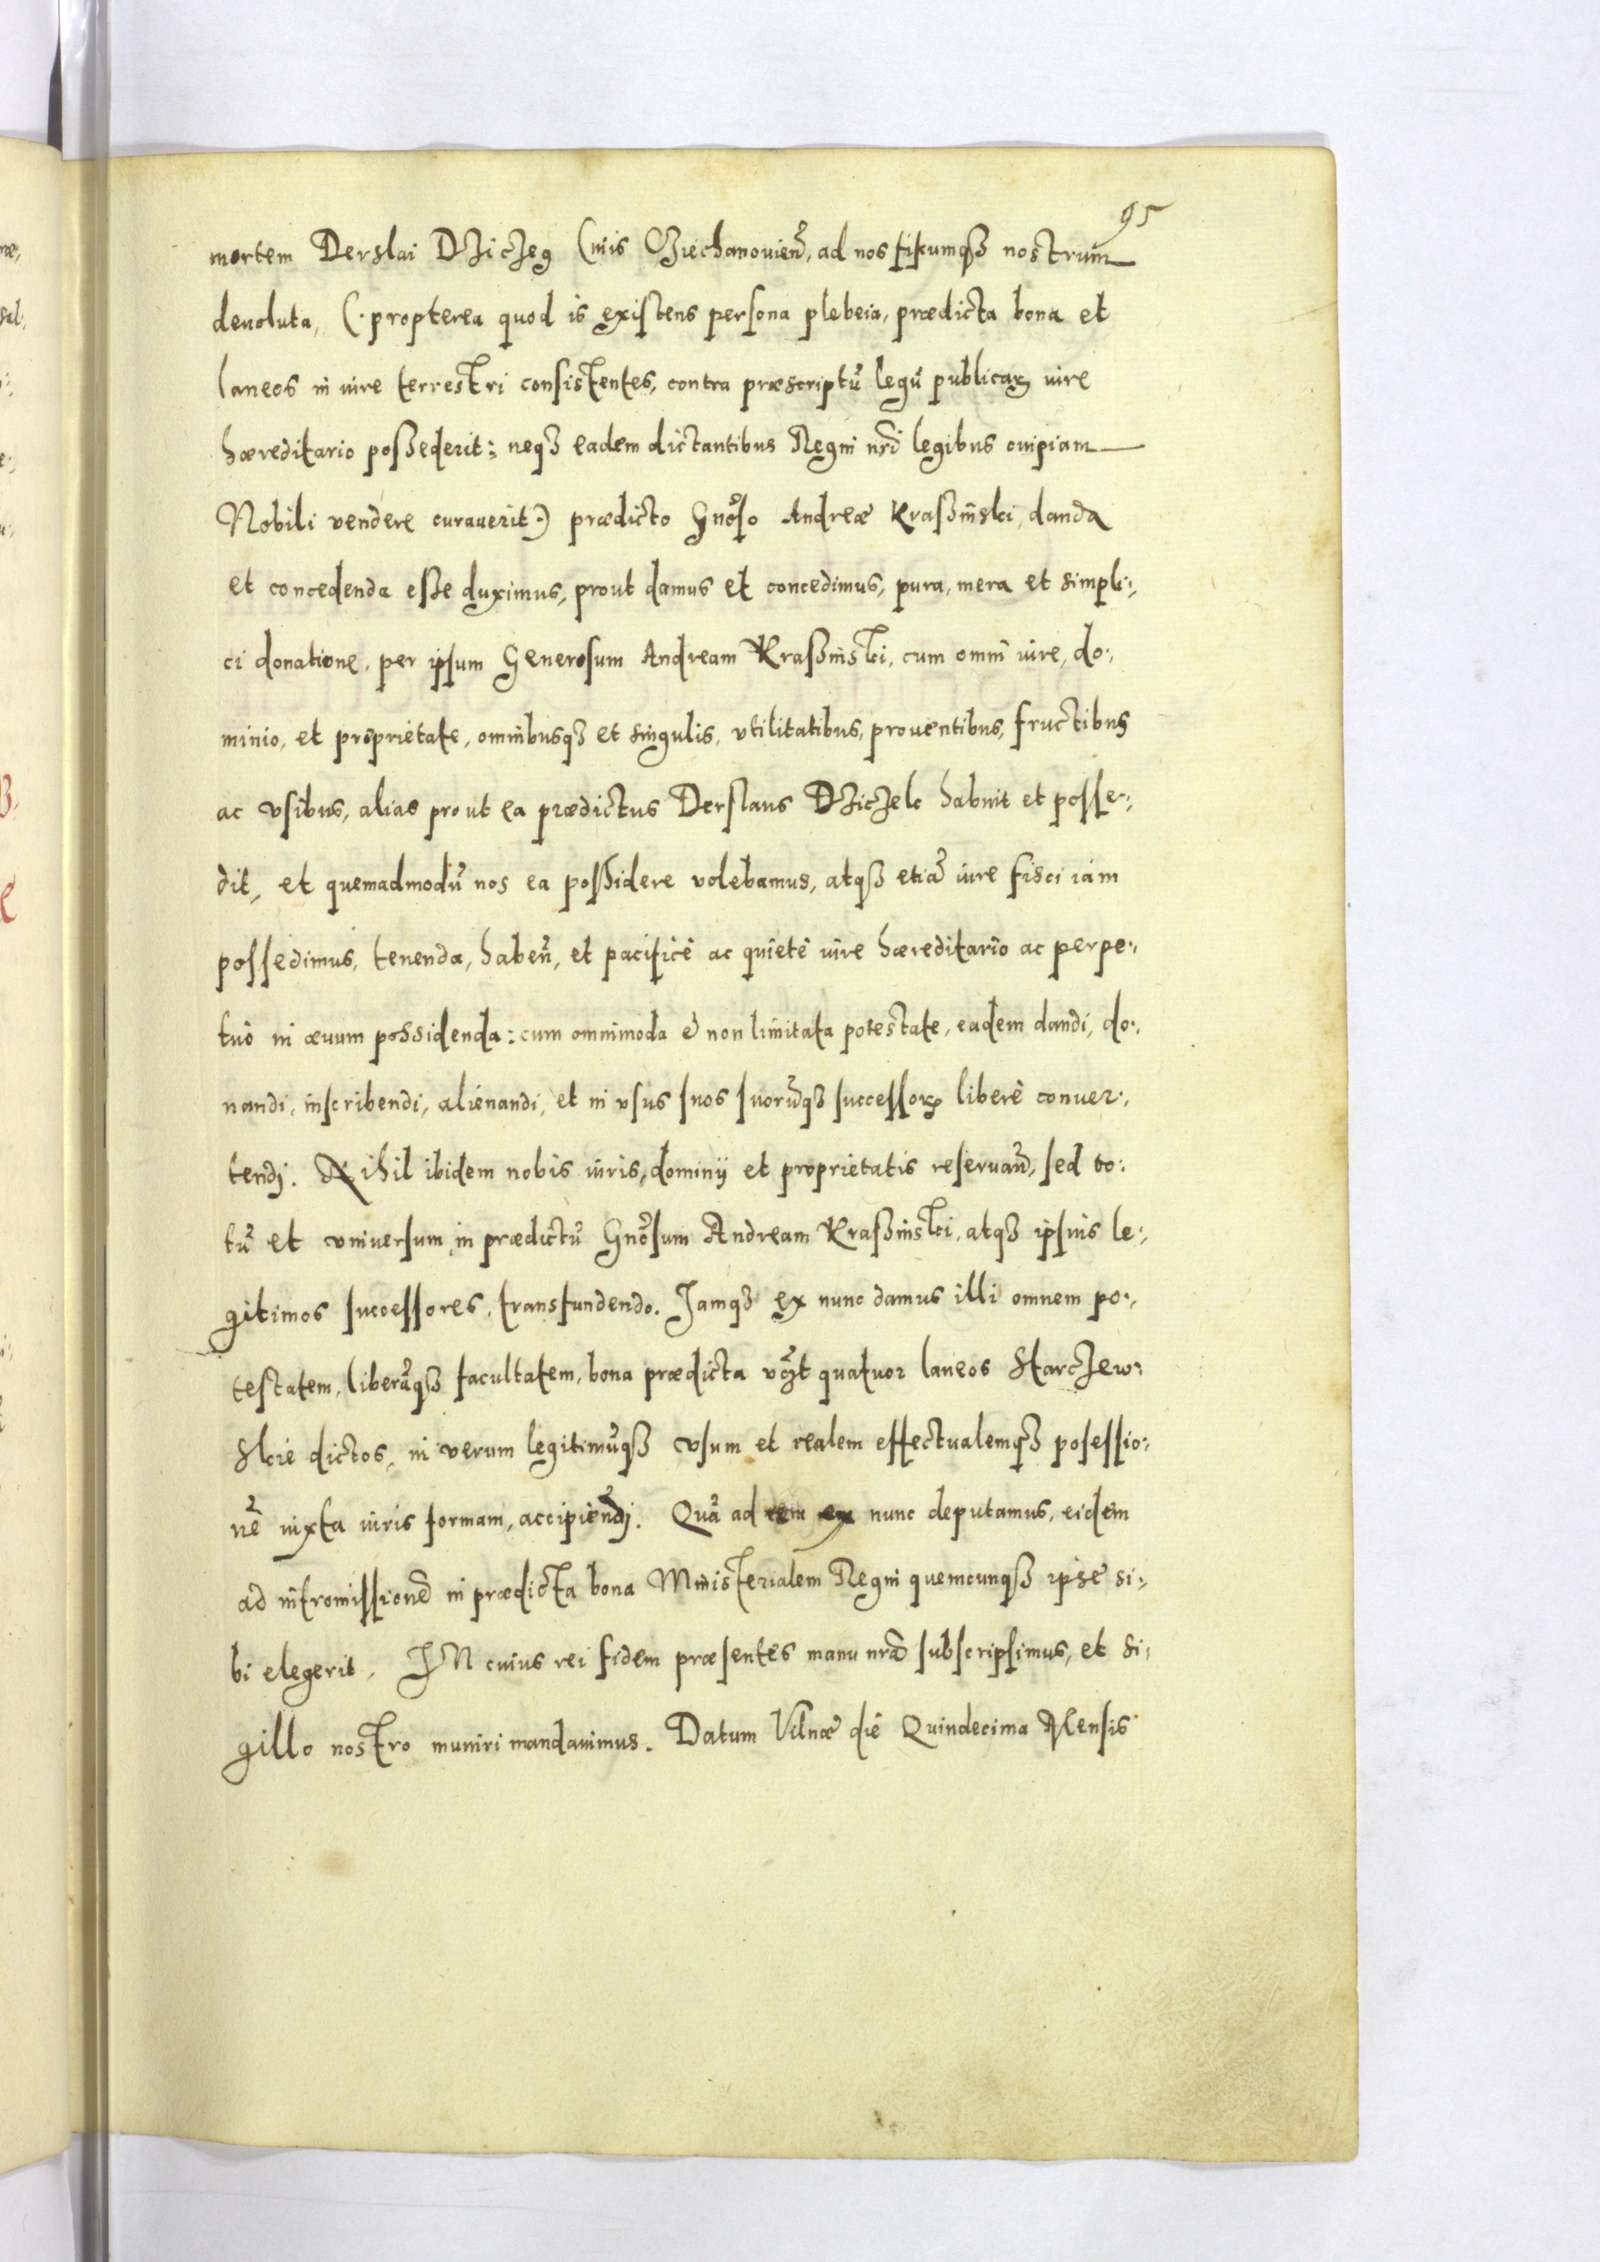 95
mortem Derslai Dziczeg Ciuis Cziechanouień, ad nos fiscumqꝫ nostrum
deuoluta, (propterea quod is existens persona plebeia, prædicta bona et
laneos in iure terrestri consistentes, contra præscriptũ legũ publicaꝝ iure
hæreditario poßederit: neqꝫ eadem dictantibus Regni nr̃i legibus cuipiam
Nobili vendere curauerit) prædicto Gnõso Andreæ Kraßinski, danda
et concedenda esse duximus, prout damus et concedimus, pura, mera et simpli:
ci donatione, per ipsum Generosum Andream Kraßinski, cum omni iure, do:
minio, et proprietate, omnibusqꝫ et singulis, vtilitatibus, prouentibus, fructibus
ac vsibus, alias prout ea prædictus Derslaus Dziczek habuit et posse:
dit, et quemadmodũ nos ea poßidere volebamus, atqꝫ etiã iure fisci iam
possedimus, tenenda, habeñ, et pacificè ac quietè iure hæreditario ac perpe:
tuò in æuum possidenda: cum omnimoda & non limitata potestate, eadem dandi, do:
nandi, inscribendi, alienandi, et in vsus suos suorũqꝫ successoꝝ liberè conuer:
tendi. Nihil ibidem nobis iuris, dominij et proprietatis reseruañ, sed to:
tũ et vniuersum, in prædictũ Gnõsum Andream Kraßinski, atqꝫ ipsius le:
gitimos successores, transfundendo. Jamqꝫ ex nunc damus illi omnem po:
testatem, liberãqꝫ facultatem, bona prædicta vꝫt quatuor laneos Starczew:
skie dictos, in verum legitimũqꝫ vsum et realem effectualemqꝫ posessio:
nẽ iuxta iuris formam, accipiendi. Quã ad rem ex nunc deputamus, eidem
ad intromissionẽ in prædicta bona Ministerialem Regni quemcunqꝫ ipse si:
bi elegerit. IN cuius rei fidem præsentes manu nrã subscripsimus, et si:
gillo nostro muniri mandauimus. Datum Vilnæ die Quindecima Mensis